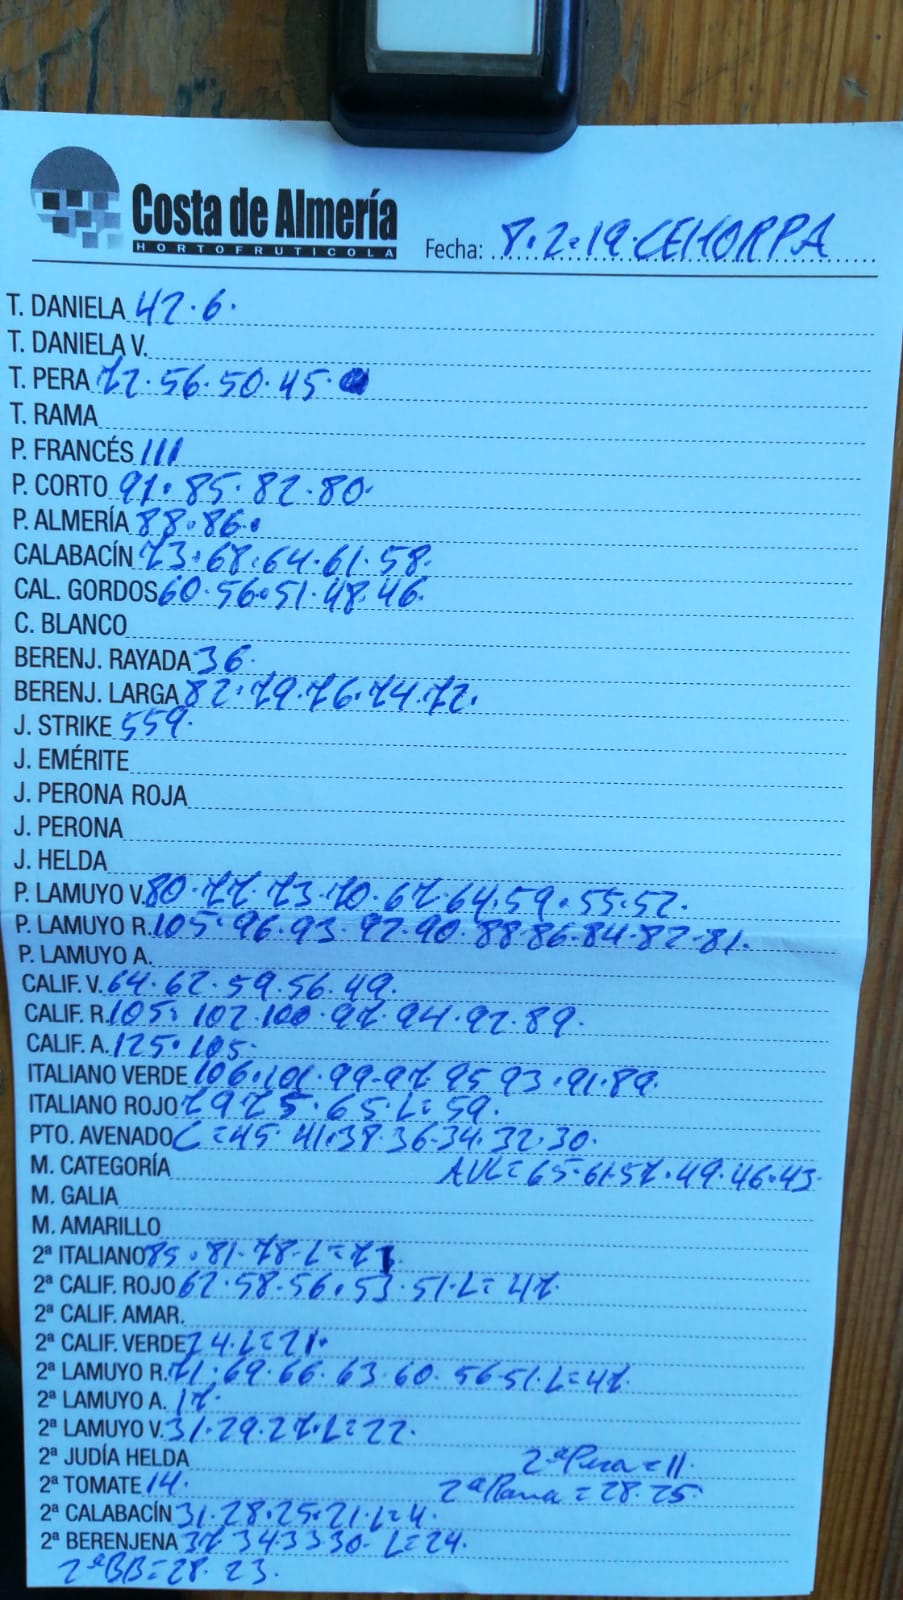 Costa de Almería
HORTOFRUTICOLA
Fecha: 8.2.19.CEHORPA
T. DANIELA 42.6.
T. DANIELA V.
T. PERA 72.56.50.45.
T. RAMA
P. FRANCÉS 111
P. CORTO 91.85.82.80.
P. ALMERÍA 88.86.
CALABACÍN 73.68.64.61.58.
CAL. GORDOS 60.56.51.48.46.
C. BLANCO
BERENJ. RAYADA 36.
BERENJ. LARGA 82.79.76.74.72.
J. STRIKE 559.
J. EMÉRITE
J. PERONA ROJA
J. PERONA
J. HELDA
P. LAMUYO V. 80.77.73.70.67.64.59.55.52.
P. LAMUYO R. 105.96.93.92.90.88.86.84.82.81.
P. LAMUYO A.
CALIF. V. 64.62.59.56.49.
CALIF. R. 105.102.100.97.94.92.89.
CALIF. A. 125.105.
ITALIANO VERDE 106.101.99.97.95.93.91.89.
ITALIANO ROJO 79.75.65.L=59.
PTO. AVENADO C=45.41.38.36.34.32.30.
M. CATEGORÍA AVL=65.61.57.49.46.43.
M. GALIA
M. AMARILLO
2ª ITALIANO 85.81.78.L=71
2ª CALIF. ROJO 62.58.56.53.51.L=47.
2ª CALIF. AMAR.
2ª CALIF. VERDE 24.L=21.
2ª LAMUYO R. 71.69.66.63.60.56.51.L=47.
2ª LAMUYO A. 17.
2ª LAMUYO V. 31.29.27.L=22.
2ª JUDÍA HELDA 2ªPera=11.
2ª TOMATE 14. 2ªRama=28.25.
2ª CALABACÍN 31.28.25.21.L=4.
2ª BERENJENA 37.34.33.30.L=24.
2ªBB=28.23.